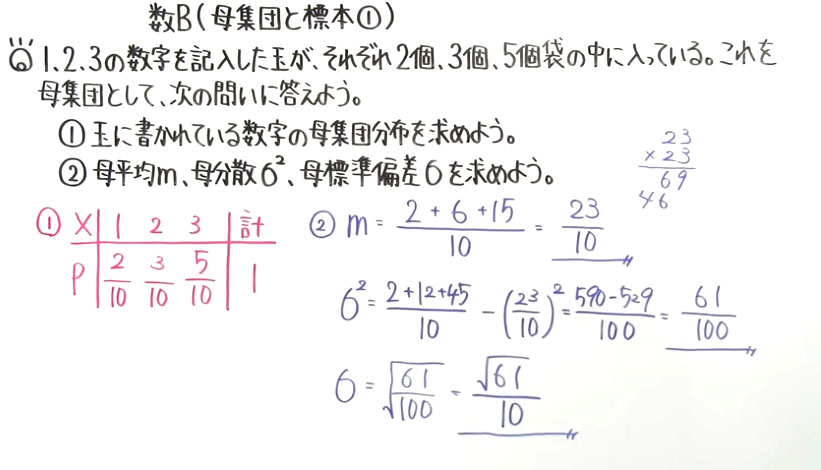 数B(母集団と標本①)
Q 1、2、3の数字を記入した玉が、それぞれ2個、3個、5個袋の中に入っている。これを
母集団として、次の問いに答えよう。
①玉に書かれている数字の母集団分布を求めよう。
②母平均m、母分散σ²、母標準偏差σを求めよう。
23
×23
69
46
① X | 1 2 3 | 計
P | 2/10 3/10 5/10 | 1
② m = (2+6+15)/10 = 23/10
σ² = (2+12+45)/10 - (23/10)² = (590-529)/100 = 61/100
σ = √(61/100) = √61/10